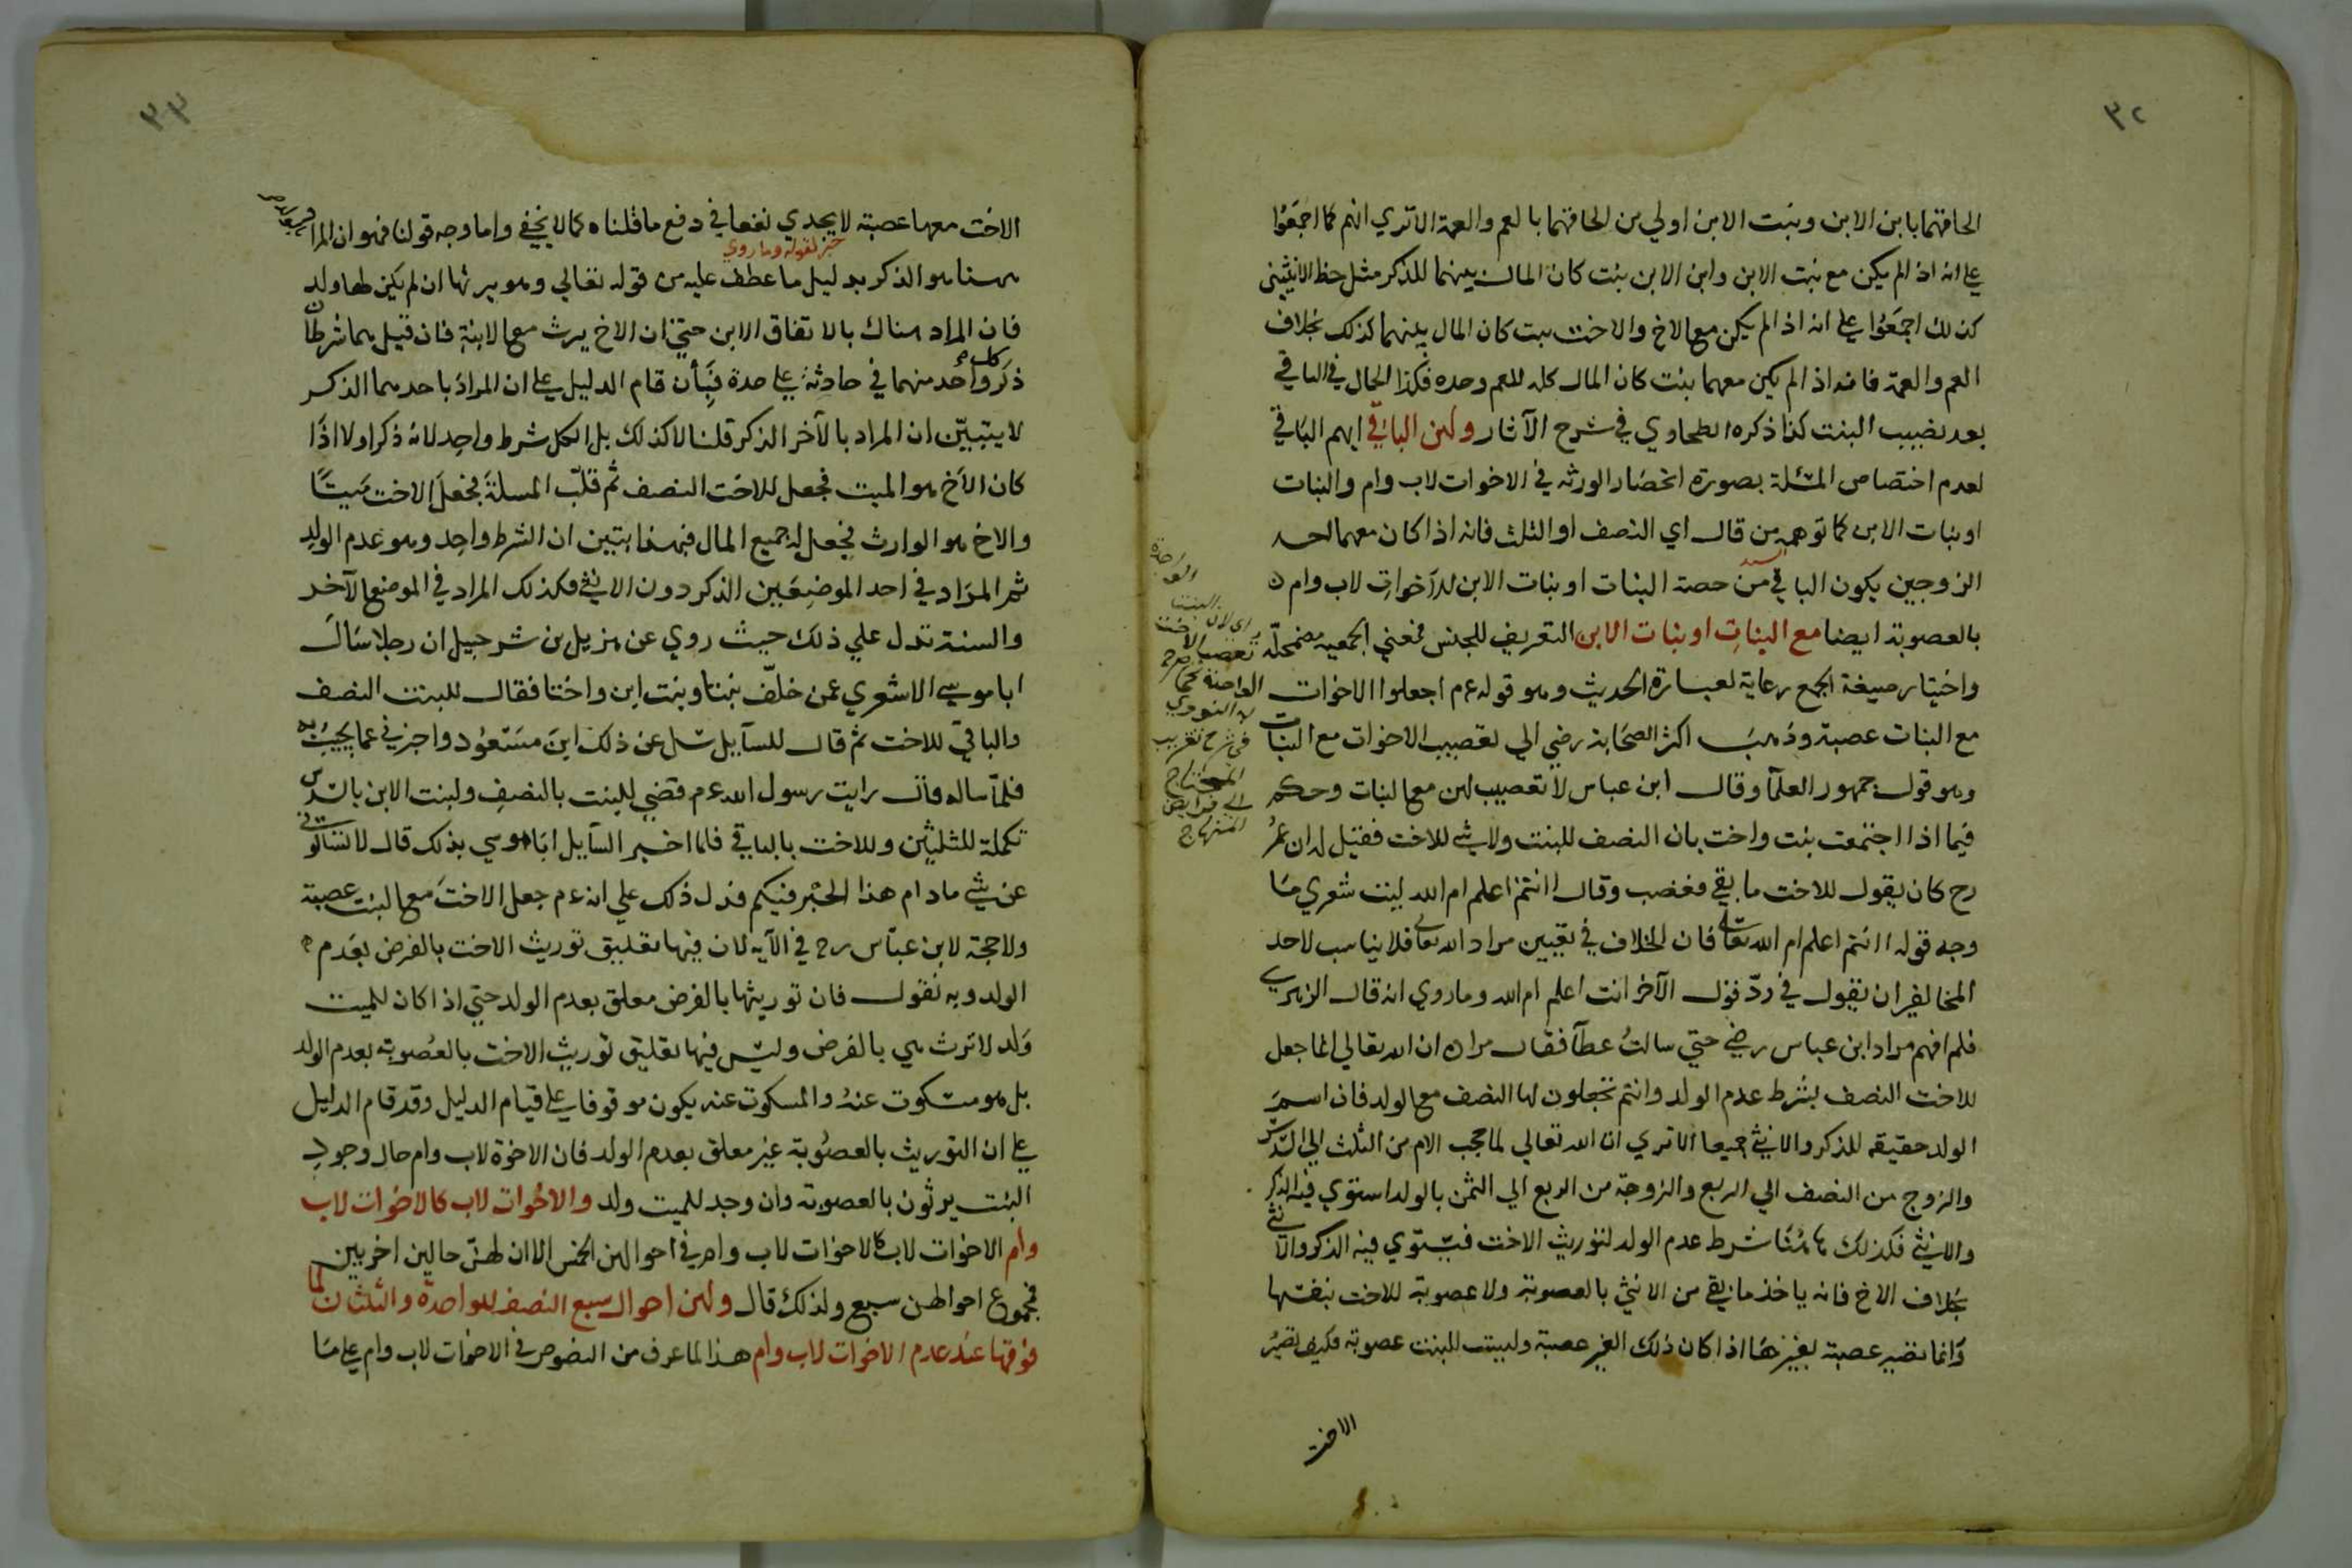 ٣٢
الحاقهما بابن الابن وبنت الابن اولي من الحاقهما بالعم والعمة الا تري انهم كما اجمَعُوا
علي انه اذا لم يكن مع بنت الابن وابن الابن بنت كان المال بينهما للذكر مثل حظ الانثيين
كذلك اجمَعُوا علي انه اذا لم يكن مع الاخ والاخت بنت كان المال بينهما كذلك بخلاف
العم والعمة فانه اذا لم يكن معهما بنت كان المال كله للعم وحده فكذا الحال في الباقي
بعد نصيب البنت كذا ذكره الطحاوي في شرح الآثار ولهن الباقي ابهم الباقي
لعدم اختصاص المسئلة بصورة انحصار الورثه في الاخوات لاب وام والبنات
او بنات الابن كما توهمه من قال اي النصف او الثلث فانه اذا كان معهما احد
الزوجين يكون الباقي من حصة البنات او بنات الابن للاخواتِ لاب وام
بالعصوبة ايضا مع البناتِ او بنات الابن التعريف للجنس فمعني الجمعيه مضمحلّة
واختيار صيغة الجمع رعاية لعبارة الحديث وهو قوله عم اجعلوا الاخوات
مع البنات عصبة وذهبَ اكثر الصحَابة رضي الي تعصيب الاخوات مع البنات
وهو قول جمهور العلمآ وقال ابن عباس لا تعصيب لهن مع البنات وحكم
فيما اذا اجتمعت بنت واخت بان النصف للبنت ولا شي للاخت فقيل له ان عمرُ
رح كان يقول للاخت ما بقي فغضب وقال اانتم اعلم ام الله ليت شعري مَا
وجه قوله اانتم اعلم ام الله تعالي فان الخلاف في تعيين مراد الله تعالي فلا يناسب لاحد
المخالفين ان يقول في ردّ قول الآخر انت اعلم ام الله وما روي انه قال الزهري
فلم افهم مراد ابن عباس رضي حتي سالتُ عطآ فقال مراده ان الله تعالي انما جعل
للاخت النصف بشرط عدم الولد وانتم تجعلون لها النصف مع الولد فان اسمَ
الولد حقيقه للذكر والانثي جميعا الا تري ان الله تعالي لما حجب الام من الثلث الي السّدس
والزوج من النصف الي الربع والزوجة من الربع الي الثمن بالولد استوي فيه الذكر
والانثي فكذلك هاهُنَا شرط عدم الولد لتوريث الاخت فيستوي فيه الذكر والانثي
بخلاف الاخ فانه ياخذ ما بقي من الانثي بالعصوبة ولا عصوبة للاخت بنفسها
وَانما تصير عصبة بغيرهَا اذا كان ذلك الغير عصبة وليست للبنت عصوبة فكيف تصيرُ
الاخت
اي لان البنت
الواحدة
تعصب الاخت
الواحدة كما صرح
النووي
في شرح تقريب
المحتاج
الي فرايض
المنهاج
٣٣
الاخت معها عصبة لا يجدي نفعا في دفع ما قلناه كما لا يخفي واما وجه قولنا فهو ان المراد
خبر لقوله وما روي
ههنا هو الذكر بدليل ما عطف عليه من قوله تعالي وهو يرثها ان لم يكن لها ولد
فان المراد هناك بالاتفاق الابن حتي ان الاخ يرث مع الابنة فان قيل هما شرطان
ذكر كل واحد منهما في حادثة علي حدة فبَأن قام الدليل علي ان المراد باحدهما الذكر
لا يتبيّن ان المراد بالآخر الذكر قلنا لا كذلك بل الكل شرط واحد لانه ذكر اولا اذا
كان الآخ هو الميت فجعل للاخت النصف ثم قلّب المسلةَ فجعل الاخت ميتًا
والاخ هو الوارث فجعل له جميع المال فبهذا يتبين ان الشرط واحد وهو عَدم الولدِ
ثم المرَاد في احد الموضِعَين الذكر دون الانثي فكذلك المراد في الموضع الآخر
والسنة تدل علي ذلك حيث روي عن هزيل بن شرحبيل ان رجلا سَألَ
ابا موسي الاشعري عمن خلّف بنتا وبنت ابن واختا فقال للبنت النصف
والباقي للاخت ثم قال للسآيل سل عن ذلك ابنَ مسَعُود واخبرني عما يجيبُ به
فلمّا ساله قال رايت رسول الله عم قضي للبنت بالنصفِ ولبنت الابن بالسّدس
تكملة للثلثين وللاخت بالباقي فلما اخبر السآيل ابَا موسي بذلك قال لا تسَالوني
عن شي ما دام هذا الحَبْر فيكم فدل ذلك علي انه عم جعل الاختَ مع البنت عصبة
ولا حجة لابن عبّاس رح في الآيه لان فيها تعليق توريث الاخت بالفرض بعَدم
الولد وبه نقول فان توريثها بالفرض معلق بعدم الولد حتي اذا كان للميت
وَلد لا ترث هي بالفرض وليس فيها تعليق توريث الاخت بالعُصوبة بعدم الولد
بل هو مسكوت عنهُ والمسكوت عنه يكون موقوفا علي قيام الدليل وقد قام الدليل
علي ان التوريث بالعصُوبة غير معلق بعدم الولد فان الاخوة لاب وام حال وجودِ
البنت يرثون بالعصوبة وان وجد للميت ولد والاخوات لاب كالاخوات لاب
وام الاخوات لاب كالاخوات لاب وام في احوالهن الخمس الا ان لهنّ حالين اخريين
فمجموع احوالهن سبع ولذلك قال ولهن احوال سبع النصف للواحدة والثلثان لما
فوقها عند عدم الاخوات لاب وام هذا لما عرف من النصوص في الاخوات لاب وام علي مَا